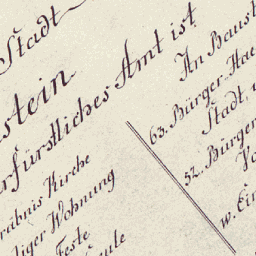 Stadt
stein
rfürstliches Amt ist
räbnis Kirche
liger Wohnung
Feste
In Haust
63. Bürger Hae
Stadt,
52. Bürger
w. Ein